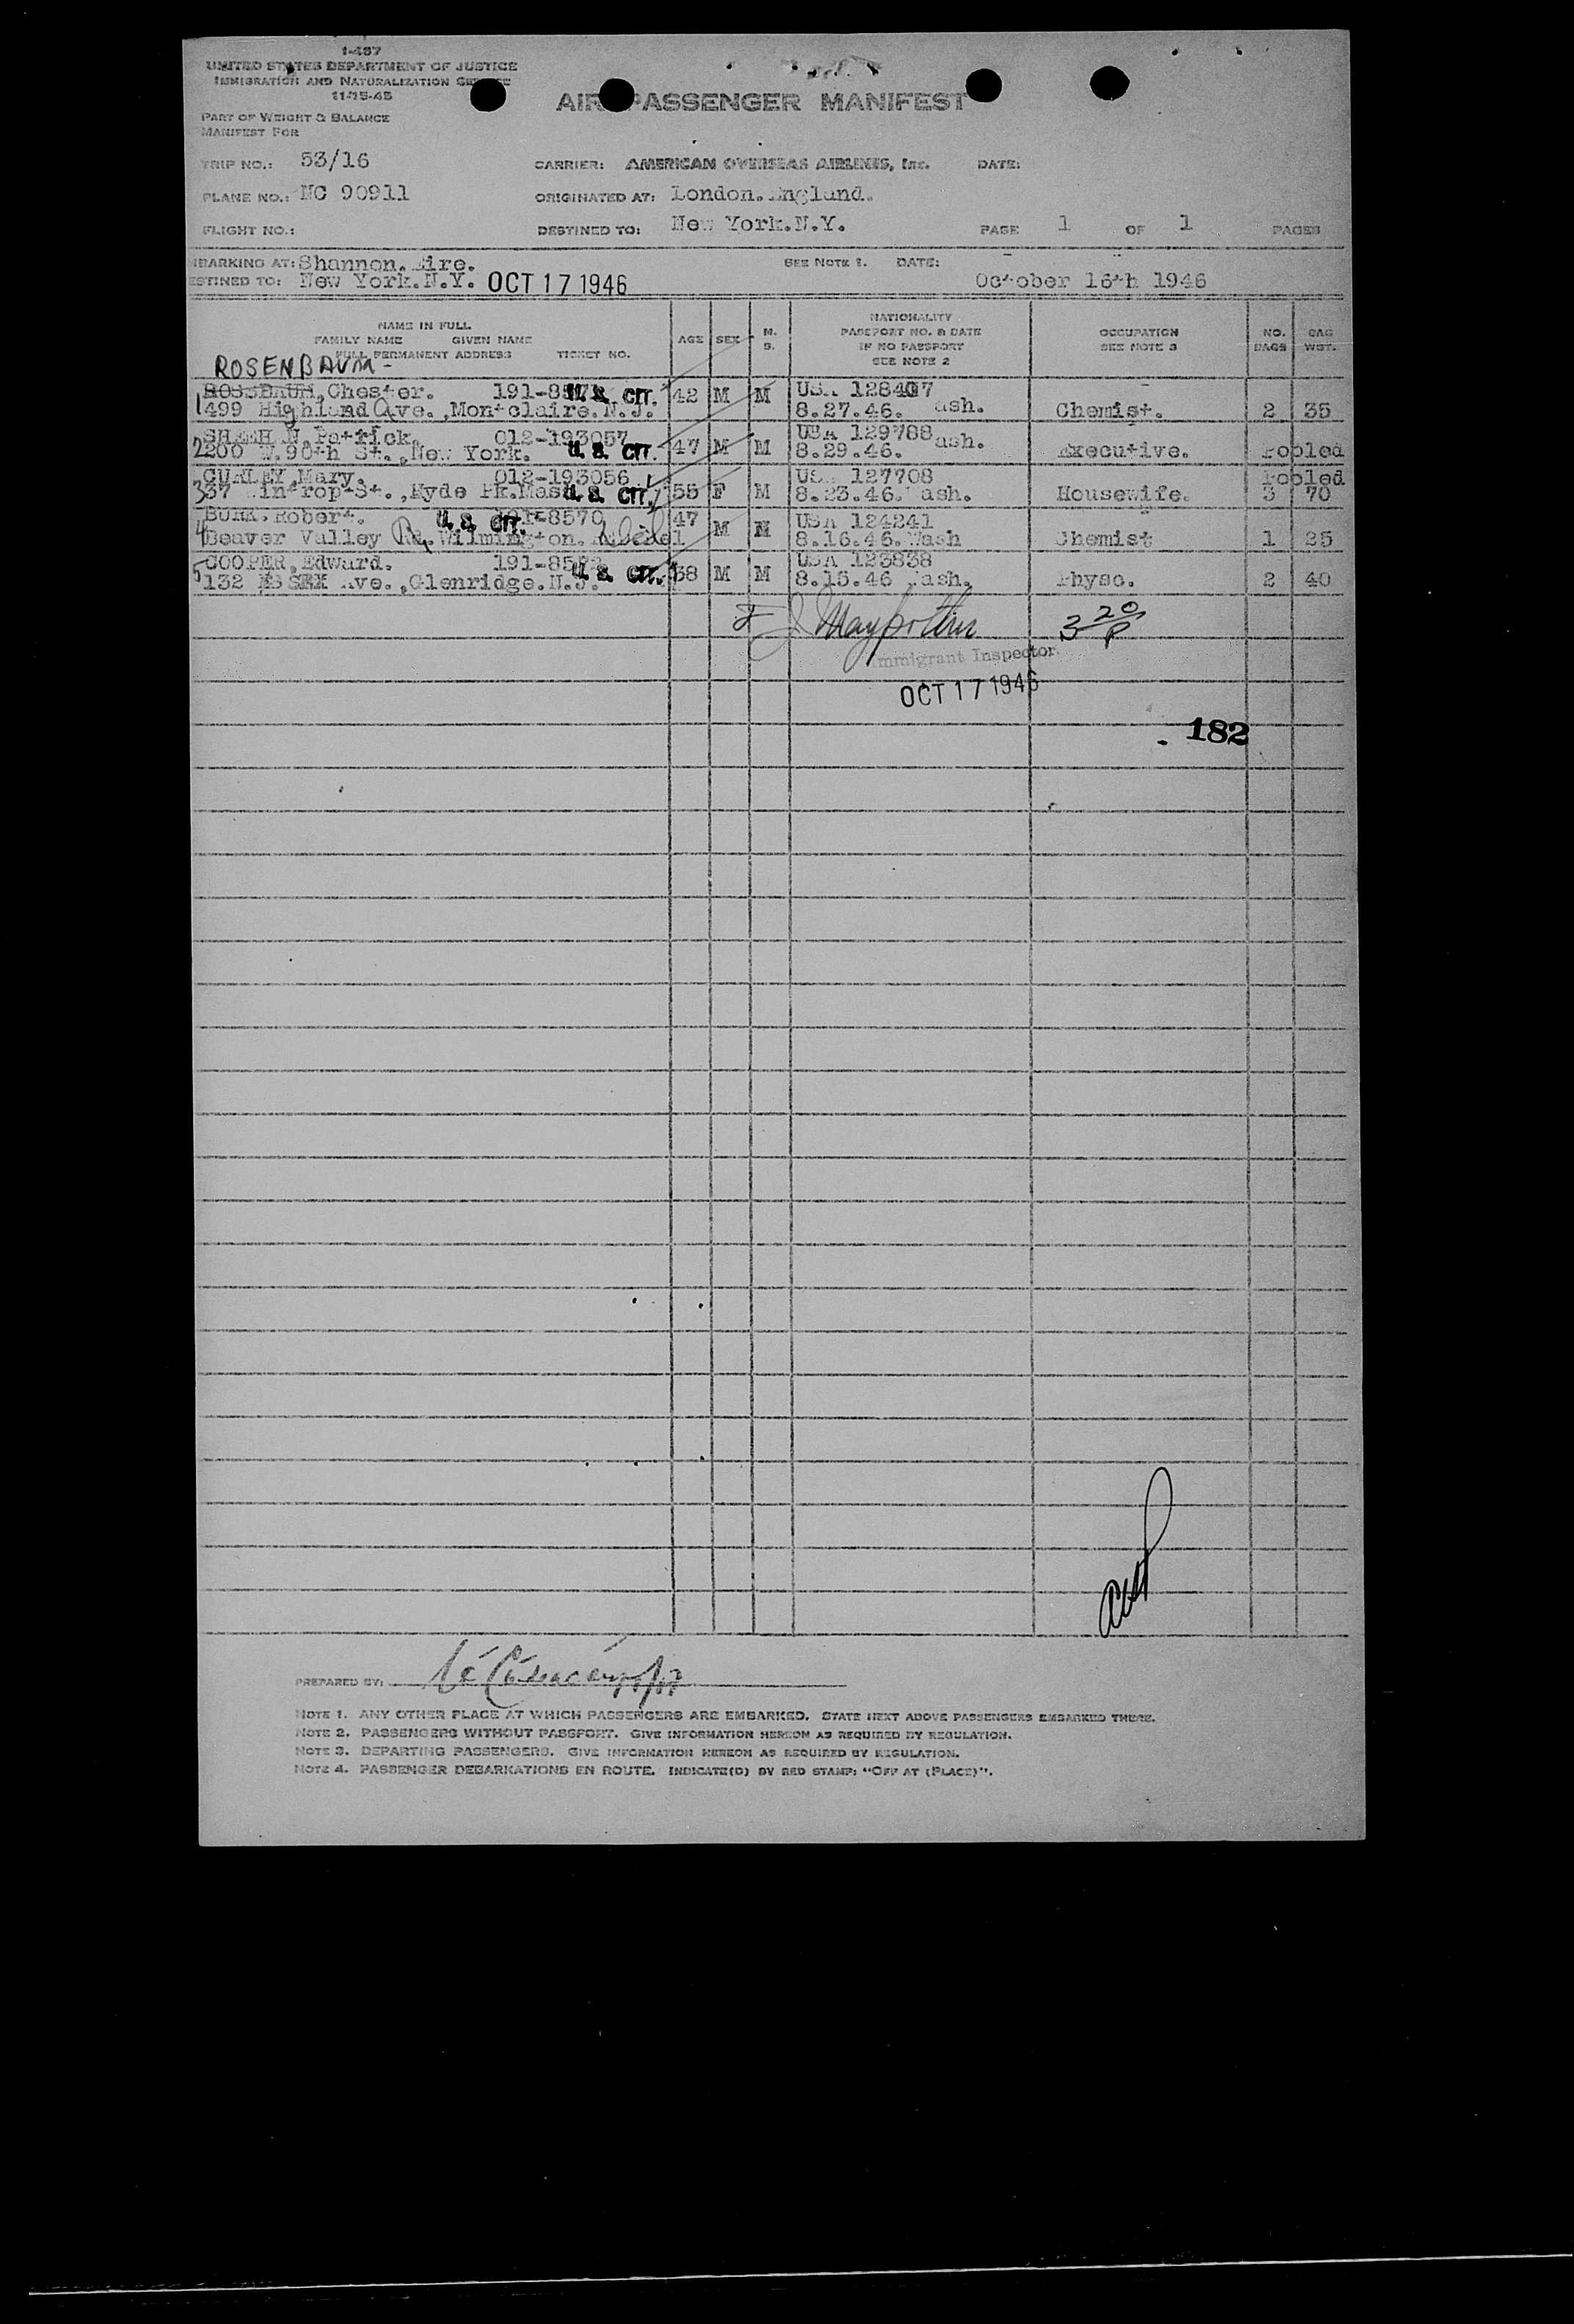 1-487
UNITED STATES DEPARTMENT OF JUSTICE
IMMIGRATION AND NATURALIZATION
11-15-45
AIR PASSENGER MANIFEST
PART OF WEIGHT & BALANCE
MANIFEST FOR
TRIP NO.: 53/16 CARRIER: AMERICAN OVERSEAS AIRLINES, Inc. DATE:
PLANE NO.: NC 90911 ORIGINATED AT: London. England.
FLIGHT NO.: DESTINED TO: New York.N.Y. PAGE 1 OF 1 PAGES
MBARKING AT: Shannon. Eire. SEE NOTE 1. DATE:
ESTINED TO: New York.N.Y. OCT 17 1946 October 16th 1946
NAME IN FULL
FAMILY NAME GIVEN NAME
FULL PERMANENT ADDRESS TICKET NO.
AGE SEX M. S.
NATIONALITY
PASSPORT NO. & DATE
IF NO PASSPORT
SEE NOTE 2
OCCUPATION
SEE NOTE 3
NO. BAGS
BAG WGT.
ROSENBAUM-
Chester. U.S. CIT. 42 M M USA 128407
1 499 Highland Ave.,Montclaire.N.J. 8.27.46. ash. Chemist. 2 35
Patrick. 012-193057 USA 129788
2 200 W.90th St.,New York. U.S. CIT. 47 M M 8.29.46. ash. Executive. Pooled
CURLEY,Mary. 012-193056 USA 127708 Pooled
3 37 Wintrop St.,Hyde Pk.Mas U.S. CIT. 55 F M 8.23.46. ash. Housewife. 3 70
Robert. U.S. CIT. 191-8570 47 USA 124241
4 Beaver Valley Rd. Wilmington. M M 8.16.46.Wash Chemist 1 25
COOPER,Edward. U.S. CIT. 38 M M USA 123838
5 132 ESSEX Ave.,Glenridge.N.J. 8.15.46 Wash. Physc. 2 40
3 20/P
Immigrant Inspector
OCT 17 1946
182
PREPARED BY:
NOTE 1. ANY OTHER PLACE AT WHICH PASSENGERS ARE EMBARKED. STATE NEXT ABOVE PASSENGERS EMBARKED THERE.
NOTE 2. PASSENGERS WITHOUT PASSPORT. GIVE INFORMATION HEREON AS REQUIRED BY REGULATION.
NOTE 3. DEPARTING PASSENGERS. GIVE INFORMATION HEREON AS REQUIRED BY REGULATION.
NOTE 4. PASSENGER DEBARKATIONS EN ROUTE. INDICATE(D) BY RED STAMP: "OFF AT (PLACE)".